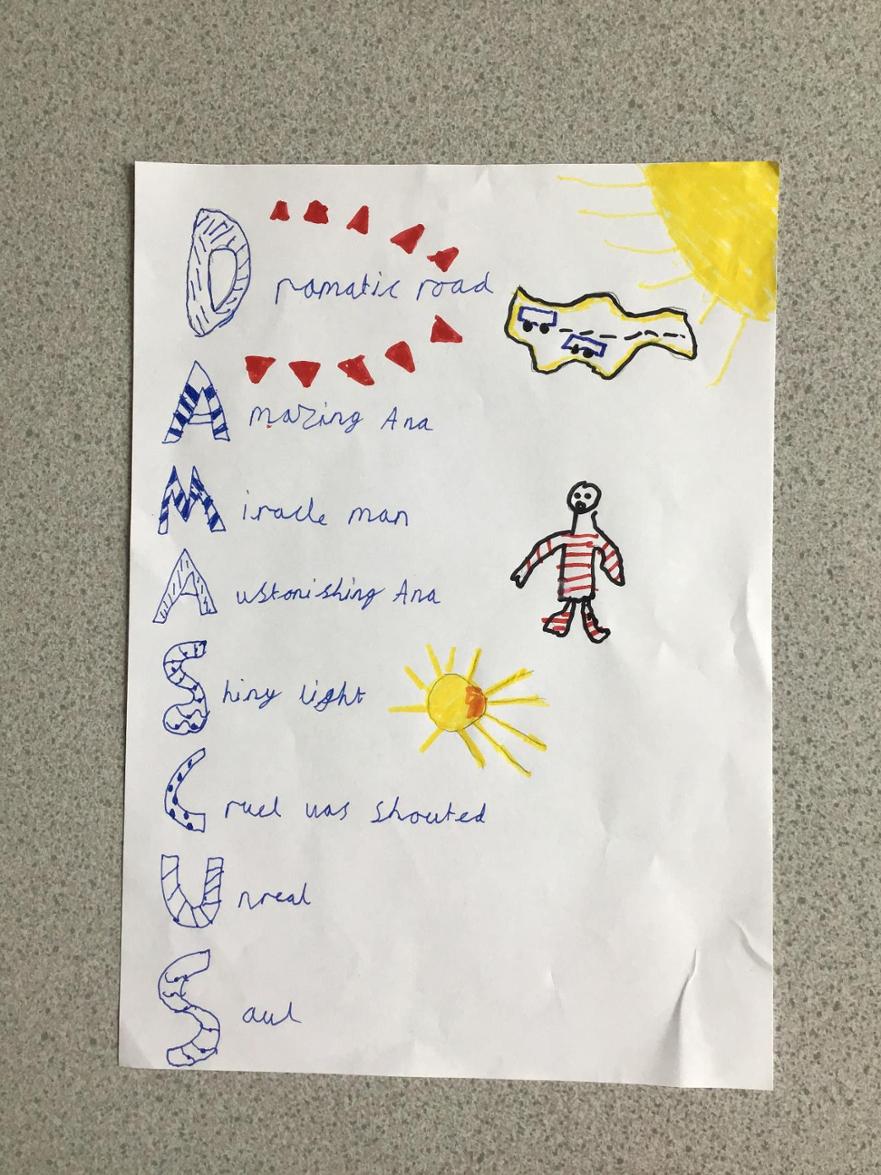 Dramatic road
Amazing Ana
Miracle man
Austonishing Ana
Shiny light
Cruel was shouted
Unreal
Saul